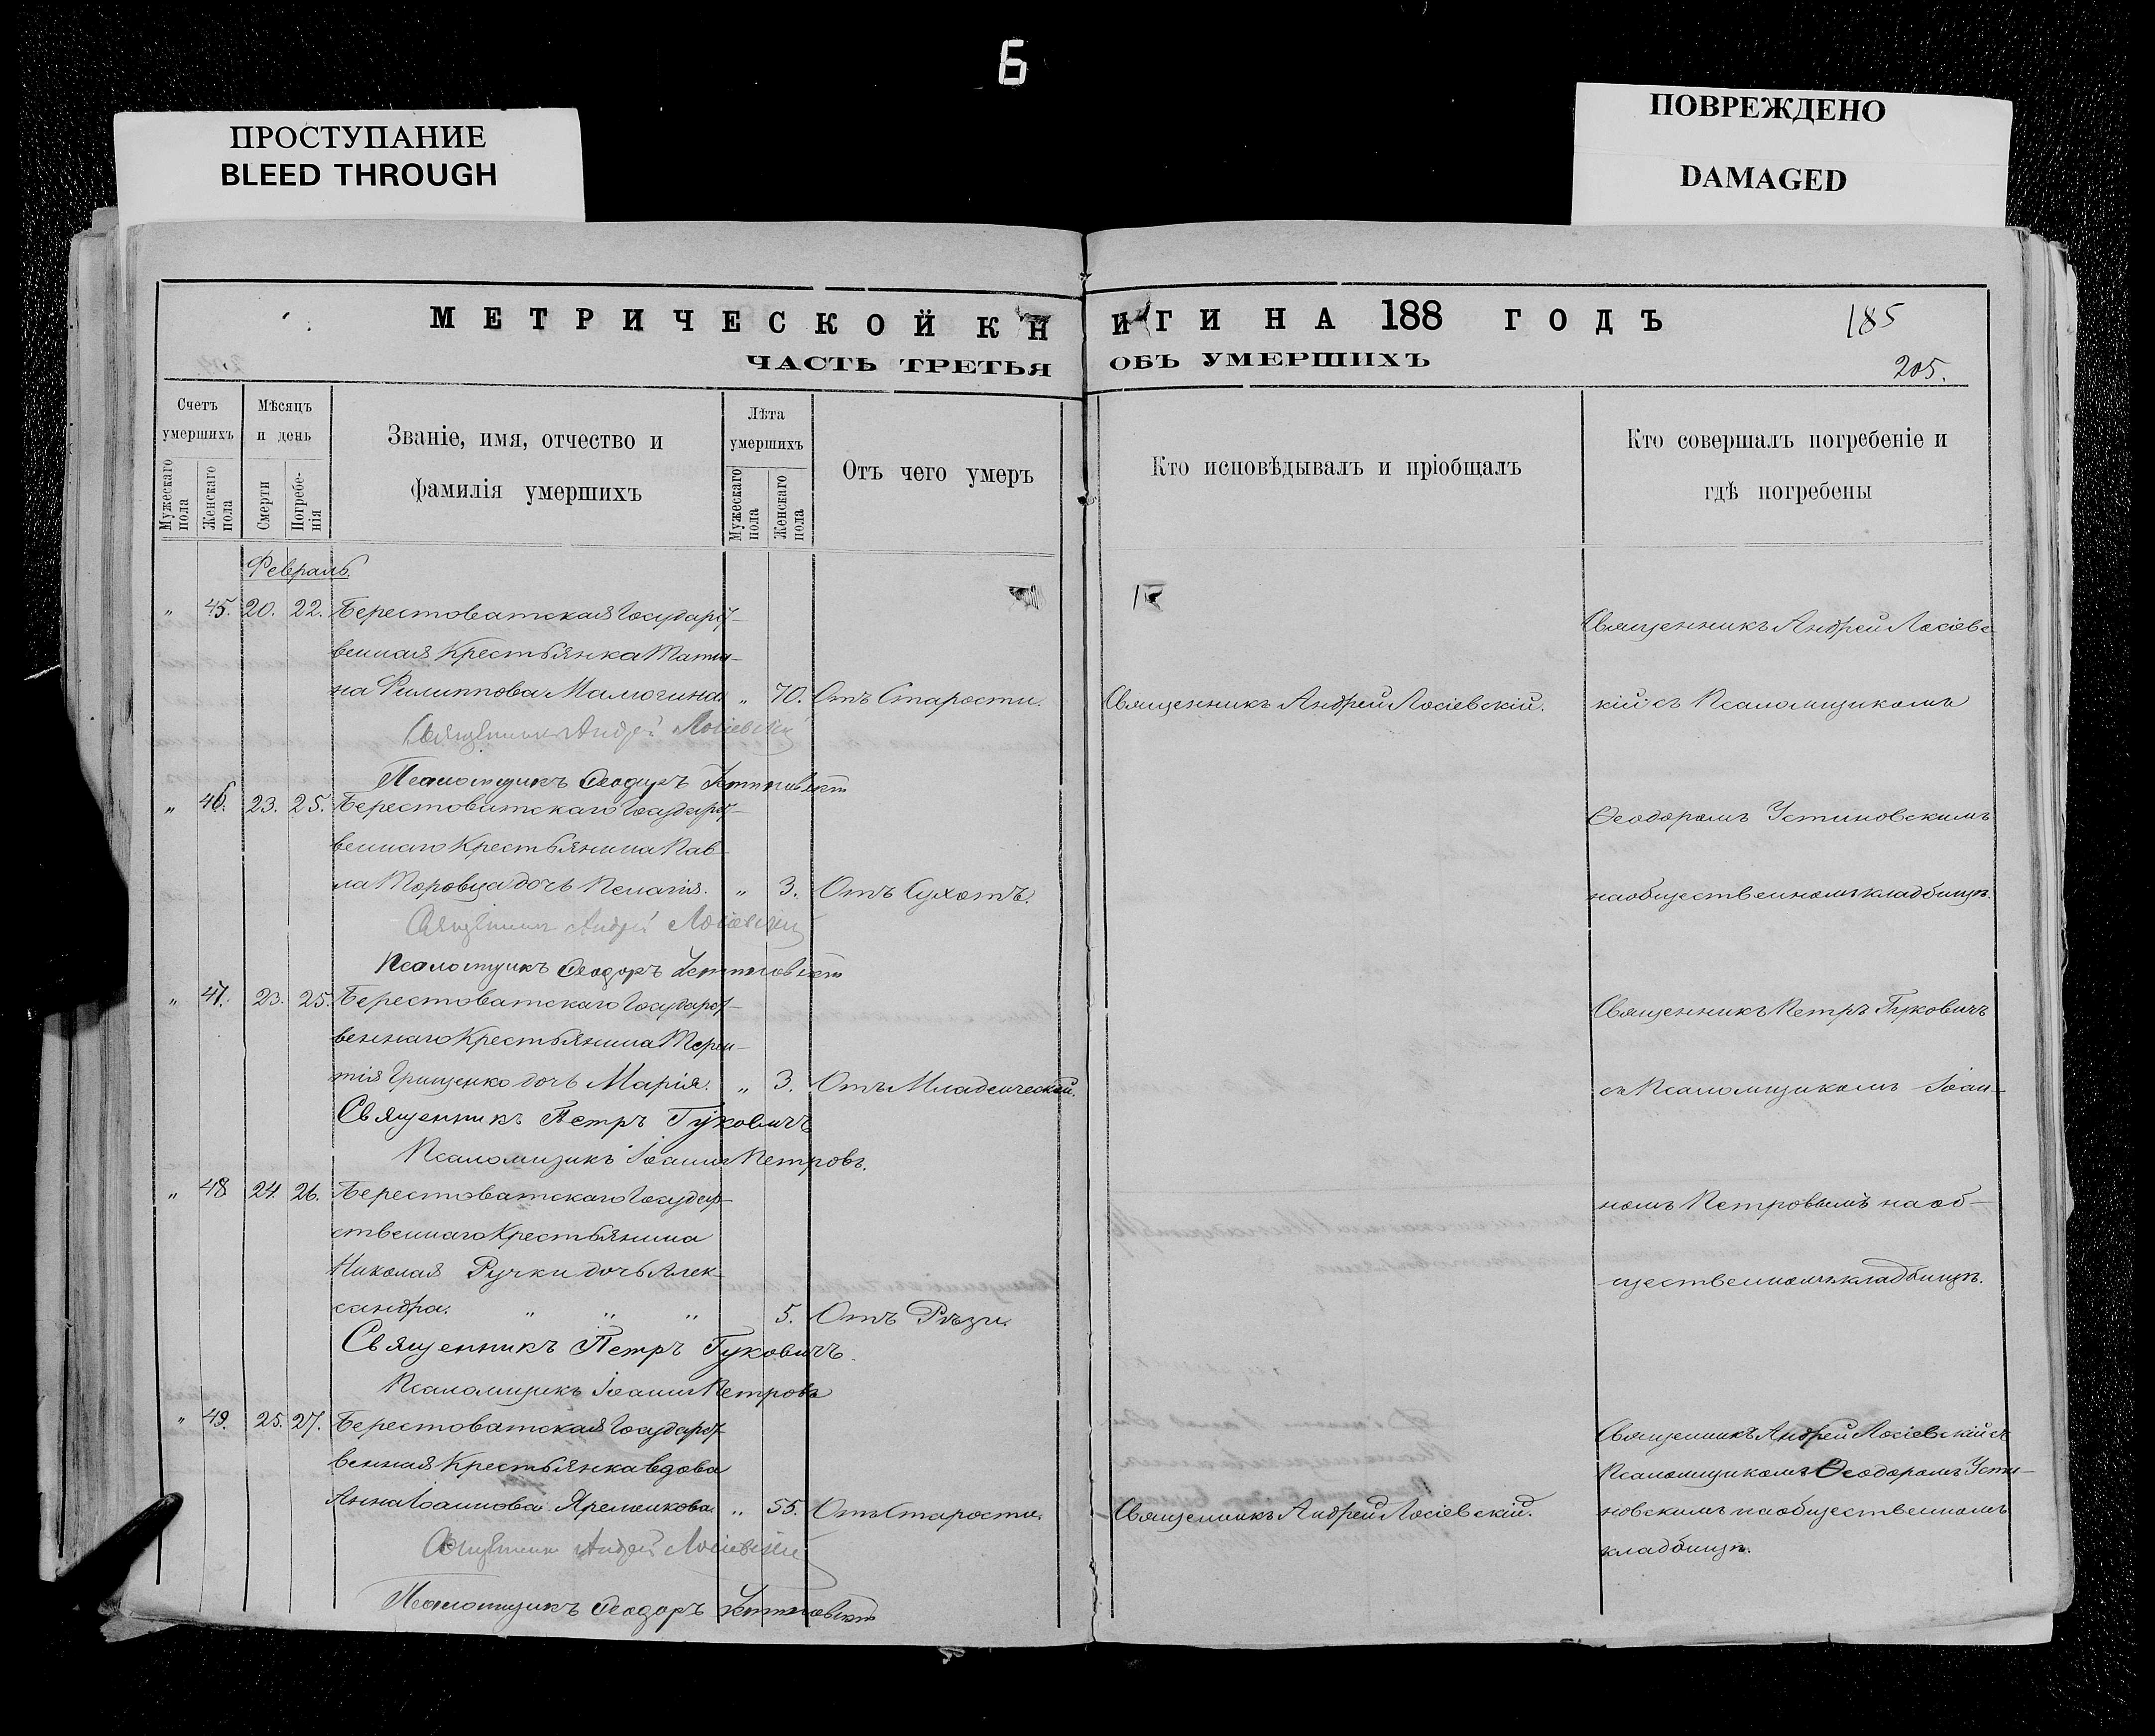 6
ПРОСТУПАНИЕ
BLEED THROUGH
ПОВРЕЖДЕНО
DAMAGED
МЕТРИЧЕСКОЙ КНИГИ НА 188 ГОДЪ
185
ЧАСТЬ ТРЕТЬЯ ОБЪ УМЕРШИХЪ
205.
Счетъ умершихъ
Мужескаго пола
Женскаго пола
Мѣсяцъ и день
Смерти
Погребенія
Званіе, имя, отчество и фамилія умершихъ
Лѣта умершихъ
Мужескаго пола
Женскаго пола
Отъ чего умеръ
Кто исповѣдывалъ и пріобщалъ
Кто совершалъ погребеніе и гдѣ погребены
Февраль
" 45. 20. 22. Берестоватская Государст-
венная Крестьянка Татья-
на Филиппова Малюгина. " 70. Отъ Старости. Священникъ Андрей Лосіевскій.
Священникъ Андрей Лосіевскій
Псаломщикъ Ѳеодоръ Устиновскій
Священникъ Андрей Лосіевс-
кій съ Псаломщикомъ
" 46. 23. 25. Берестоватскаго Государст-
веннаго Крестьянина Пав-
ла Торовца дочь Пелагія. " 3. Отъ Сухотъ.
Священникъ Андрей Лосіевскій
Псаломщикъ Ѳеодоръ Устиновскій
Ѳеодоромъ Устиновскимъ
на общественномъ кладбищѣ.
" 47. 23. 25. Берестоватскаго Государст-
веннаго Крестьянина Терен-
тія Грищенко дочь Марія. " 3. Отъ Младенческой.
Священникъ Петръ Гуковичъ
Псаломщикъ Іоаннъ Петровъ.
Священникъ Петръ Гуковичъ
съ Псаломщикомъ Іоан-
" 48 24. 26. Берестоватскаго Государ-
ственнаго Крестьянина
Николая Ручки дочь Алек-
сандра. " " " 5. Отъ Рѣзи.
Священникъ Петръ Гуковичъ.
Псаломщикъ Іоаннъ Петровъ
номъ Петровымъ на об-
щественномъ кладбищѣ.
" 49. 25. 27. Берестоватская Государст-
венная Крестьянка вдова
Анна Іоаннова Яременкова. " 55. Отъ Старости. Священникъ Андрей Лосіевскій.
Священникъ Андрей Лосіевскій
Псаломщикъ Ѳеодоръ Устиновскій
Священникъ Андрей Лосіевскій съ
Псаломщикомъ Ѳеодоромъ Усти-
новскимъ на общественномъ
кладбищѣ.